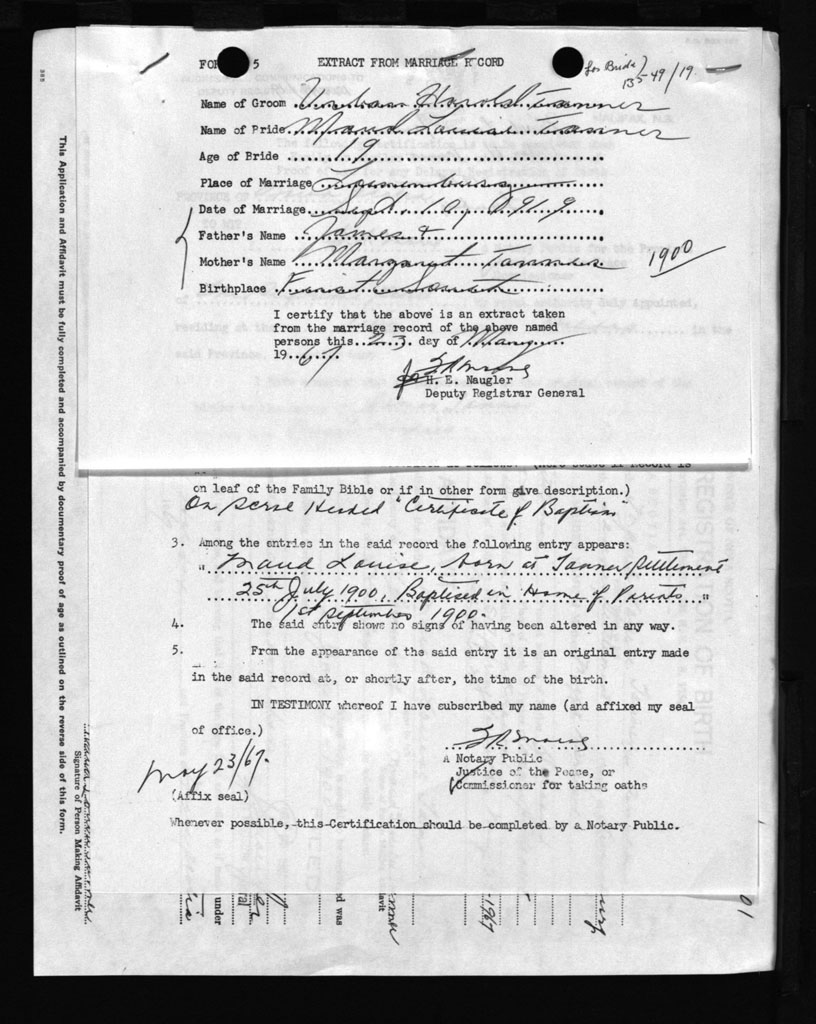 FOR 5 EXTRACT FROM MARRIAGE RECORD
for Bride
13-49/19
Name of Groom Harold Tanner
Name of Bride Maud Louise Tanner
Age of Bride 19
Place of Marriage Lunenburg
Date of Marriage Sept. 10, 1919
Father's Name James &
Mother's Name Margaret Tanner 1900
Birthplace First South
I certify that the above is an extract taken
from the marriage record of the above named
persons this 23 day of May
1967
for H. E. Naugler
Deputy Registrar General
on leaf of the Family Bible or if in other form give description.)
On Headed "Certificate of Baptism"
3. Among the entries in the said record the following entry appears:
" Maud Louise, born at Tanner Settlement
25th July 1900, Baptised in Home of Parents "
1st September 1900.
4. The said entry shows no signs of having been altered in any way.
5. From the appearance of the said entry it is an original entry made
in the said record at, or shortly after, the time of the birth.
IN TESTIMONY whereof I have subscribed my name (and affixed my seal
of office.)
May 23/67.
A Notary Public
Justice of the Peace, or
Commissioner for taking oaths
(Affix seal)
Whenever possible, this Certification should be completed by a Notary Public.
This Application and Affidavit must be fully completed and accompanied by documentary proof of age as outlined on the reverse side of this form.
Signature of Person Making Affidavit
under
d was
1967